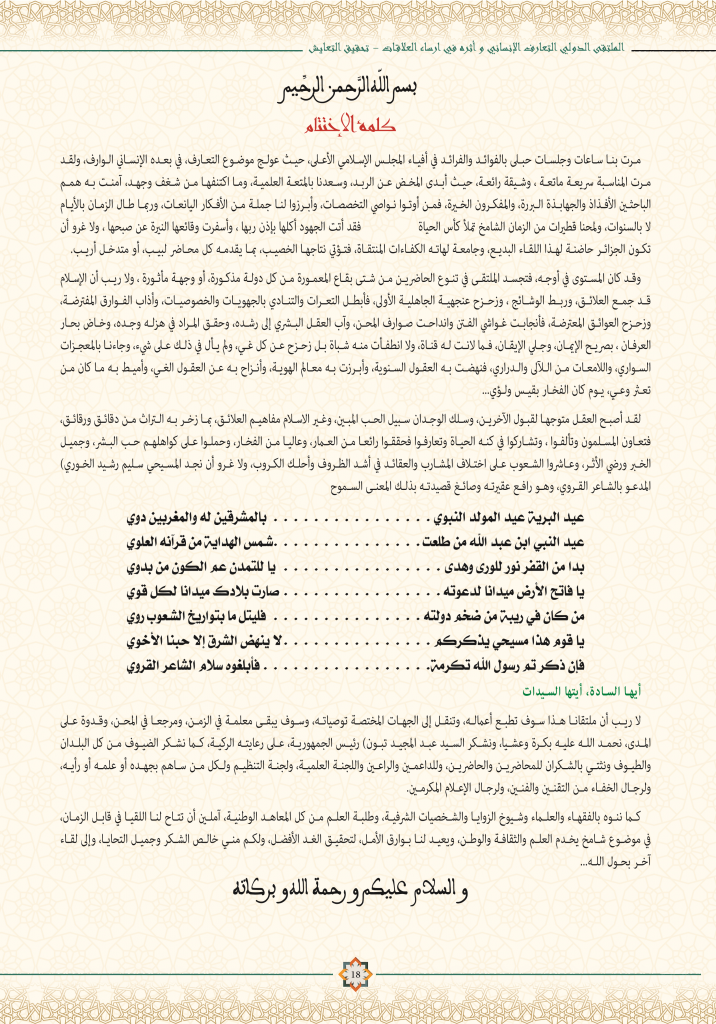 الملتقى الدولي التعارف الإنساني و أثره في ارساء العلاقات - تحقيق التعايش
بسم الله الرَّحمن الرحِّيم
كلمة الإختتام
مرت بنا ساعات وجلسات حبلى بالفوائد والفرائد في أفياء المجلس الإسلامي الأعلى، حيث عولج موضوع التعارف، في بعده الإنساني الوارف، ولقد
مرت المناسبة سريعة ماتعة ، وشيقة رائعة، حيث أبدى المخض عن الربد، وسعدنا بالمتعة العلمية، وما اكتنفها من شغف وجهد، آمنت به همم
الباحثين الأفذاذ والجهابذة البررة، والمفكرون الخيرة، فمن أوتوا نواصي التخصصات، وأبرزوا لنا جملة من الأفكار اليانعات، وربما طال الزمان بالأيام
لا بالسنوات، ولمحنا قطيرات من الزمان الشامخ تملأ كأس الحياة فقد أتت الجهود أكلها بإذن ربها ، وأسفرت وقائعها النيرة عن صبحها ، ولا غرو أن
تكون الجزائر حاضنة لهذا اللقاء البديع، وجامعة لهاته الكفاءات المنتقاة، فتؤتي نتاجها الخصيب، بما يقدمه كل محاضر لبيب، أو متدخل أريب.
وقد كان المستوى في أوجه، فتجسد الملتقى في تنوع الحاضرين من شتى بقاع المعمورة من كل دولة مذكورة، أو وجهة مأثورة ، ولا ريب أن الإسلام
قد جمع العلائق، وربط الوشائج ، وزحزح عنجهية الجاهلية الأولى، فأبطل التعرات والتنادي بالجهويات والخصوصيات، وأذاب الفوارق المفترضة،
وزحزح العوائق المعترضة، فأنجابت غواشي الفتن وانداحت صوارف المحن، وآب العقل البشري إلى رشده، وحقق المراد في هزله وجده، وخاض بحار
العرفان ، بصريح الإيمان، وجلي الإيقان، فما لانت له قناة، ولا انطفأت منه شباة بل زحزح عن كل غي، ولم يأل في ذلك على شيء، وجاءنا بالمعجزات
السواري، واللامعات من اللآلى والدراري، فنهضت به العقول السنوية، وأبرزت به معالم الهوية، وأنزاح به عن العقول الغي، وأميط به ما كان من
تعثر وعي، يوم كان الفخار بقيس ولؤي...
لقد أصبح العقل متوجها لقبول الآخرين، وسلك الوجدان سبيل الحب المبين، وغير الاسلام مفاهيم العلائق، بما زخر به التراث من دقائق ورقائق،
فتعاون المسلمون وتآلفوا ، وتشاركوا في كنه الحياة وتعارفوا فحققوا رائعا من العمار، وعاليا من الفخار، وحملوا على كواهلهم حب البشر، وجميل
الخبر ورضي الأثر، وعاشروا الشعوب على اختلاف المشارب والعقائد في أشد الظروف وأحلك الكروب، ولا غرو أن نجد المسيحي سليم رشيد الخوري)
المدعو بالشاعر القروي، وهو رافع عقيرته وصائغ قصيدته بذلك المعنى السموح
عيد البرية عيد المولد النبوي . . . . . . . . . . . . . . . . بالمشرقين له والمغربين دوي
عيد النبي ابن عبد الله من طلعت . . . . . . . . . . . . . . . شمس الهداية من قرآنه العلوي
بدا من القفر نور للورى وهدى . . . . . . . . . . . . . . . . يا للتمدن عم الكون من بدوي
يا فاتح الأرض ميدانا لدعوته . . . . . . . . . . . . . . . . صارت بلادك ميدانا لكل قوي
من كان في ريبة من ضخم دولته . . . . . . . . . . . . . . . فليتل ما بتواريخ الشعوب روي
يا قوم هذا مسيحي يذكركم . . . . . . . . . . . . . . . لا ينهض الشرق إلا حبنا الأخوي
فإن ذكرتم رسول الله تكرمة. . . . . . . . . . . . . . . . . فأبلغوه سلام الشاعر القروي
أيها السادة، أيتها السيدات
لا ريب أن ملتقانا هذا سوف تطبع أعماله، وتنقل إلى الجهات المختصة توصياته، وسوف يبقى معلمة في الزمن، ومرجعا في المحن، وقدوة على
المدى، نحمد الله عليه بكرة وعشيا، ونشكر السيد عبد المجيد تبون) رئيس الجمهورية، على رعايته الركية، كما نشكر الضيوف من كل البلدان
والطيوف ونثني بالشكران للمحاضرين والحاضرين، وللداعمين والراعين واللجنة العلمية، ولجنة التنظيم ولكل من ساهم بجهده أو علمه أو رأيه،
ولرجال الخفاء من التقنين والفنين، ولرجال الإعلام المكرمين.
كما ننوه بالفقهاء والعلماء وشيوخ الزوايا والشخصيات الشرفية، وطلبة العلم من كل المعاهد الوطنية، آملين أن تتاح لنا اللقيا في قابل الزمان،
في موضوع شامخ يخدم العلم والثقافة والوطن، ويعيد لنا بوارق الأمل، لتحقيق الغد الأفضل، ولكم مني خالص الشكر وجميل التحايا، وإلى لقاء
آخر بحول الله...
و السلام عليكم و رحمة الله و بركاته
18